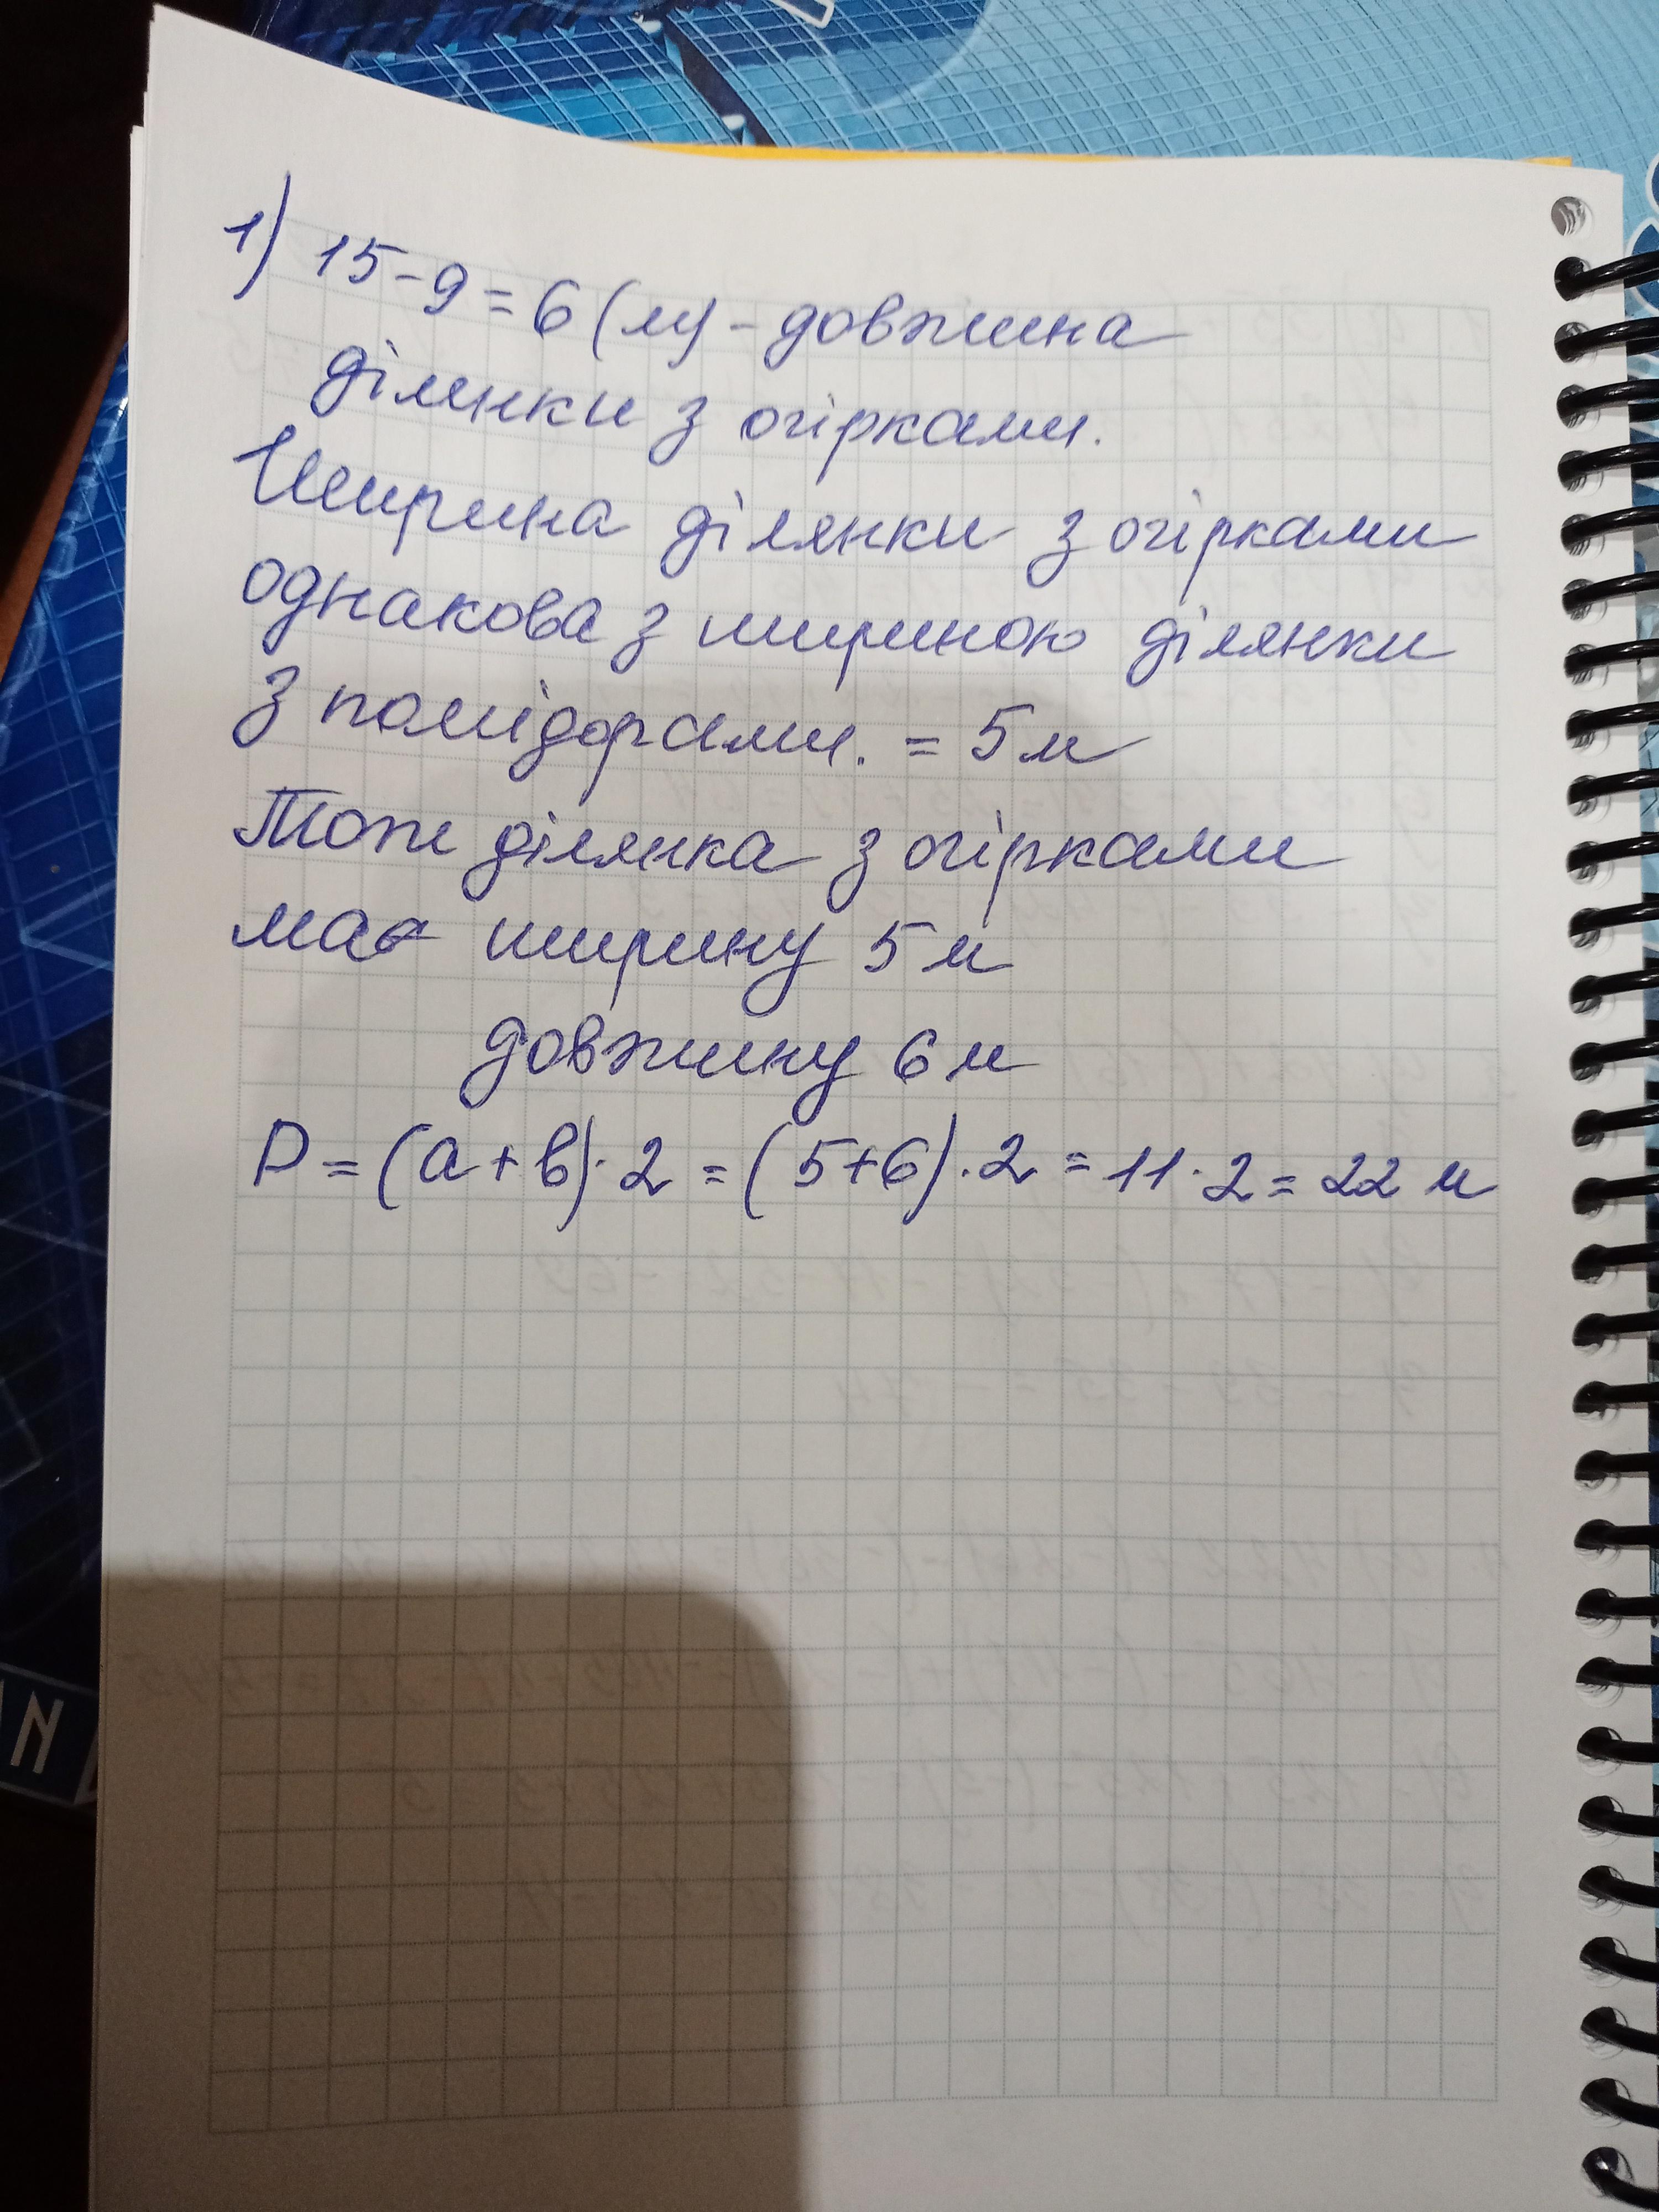 1) 15-9=6 (м) - довжина
ділянки з огірками.
Ширина ділянки з огірками
однакова з шириною ділянки
з помідорами. = 5 м
Тоже ділянка з огірками
має ширину 5 м
довжину 6 м
P = (a+b)·2 = (5+6)·2 = 11·2 = 22 м
N